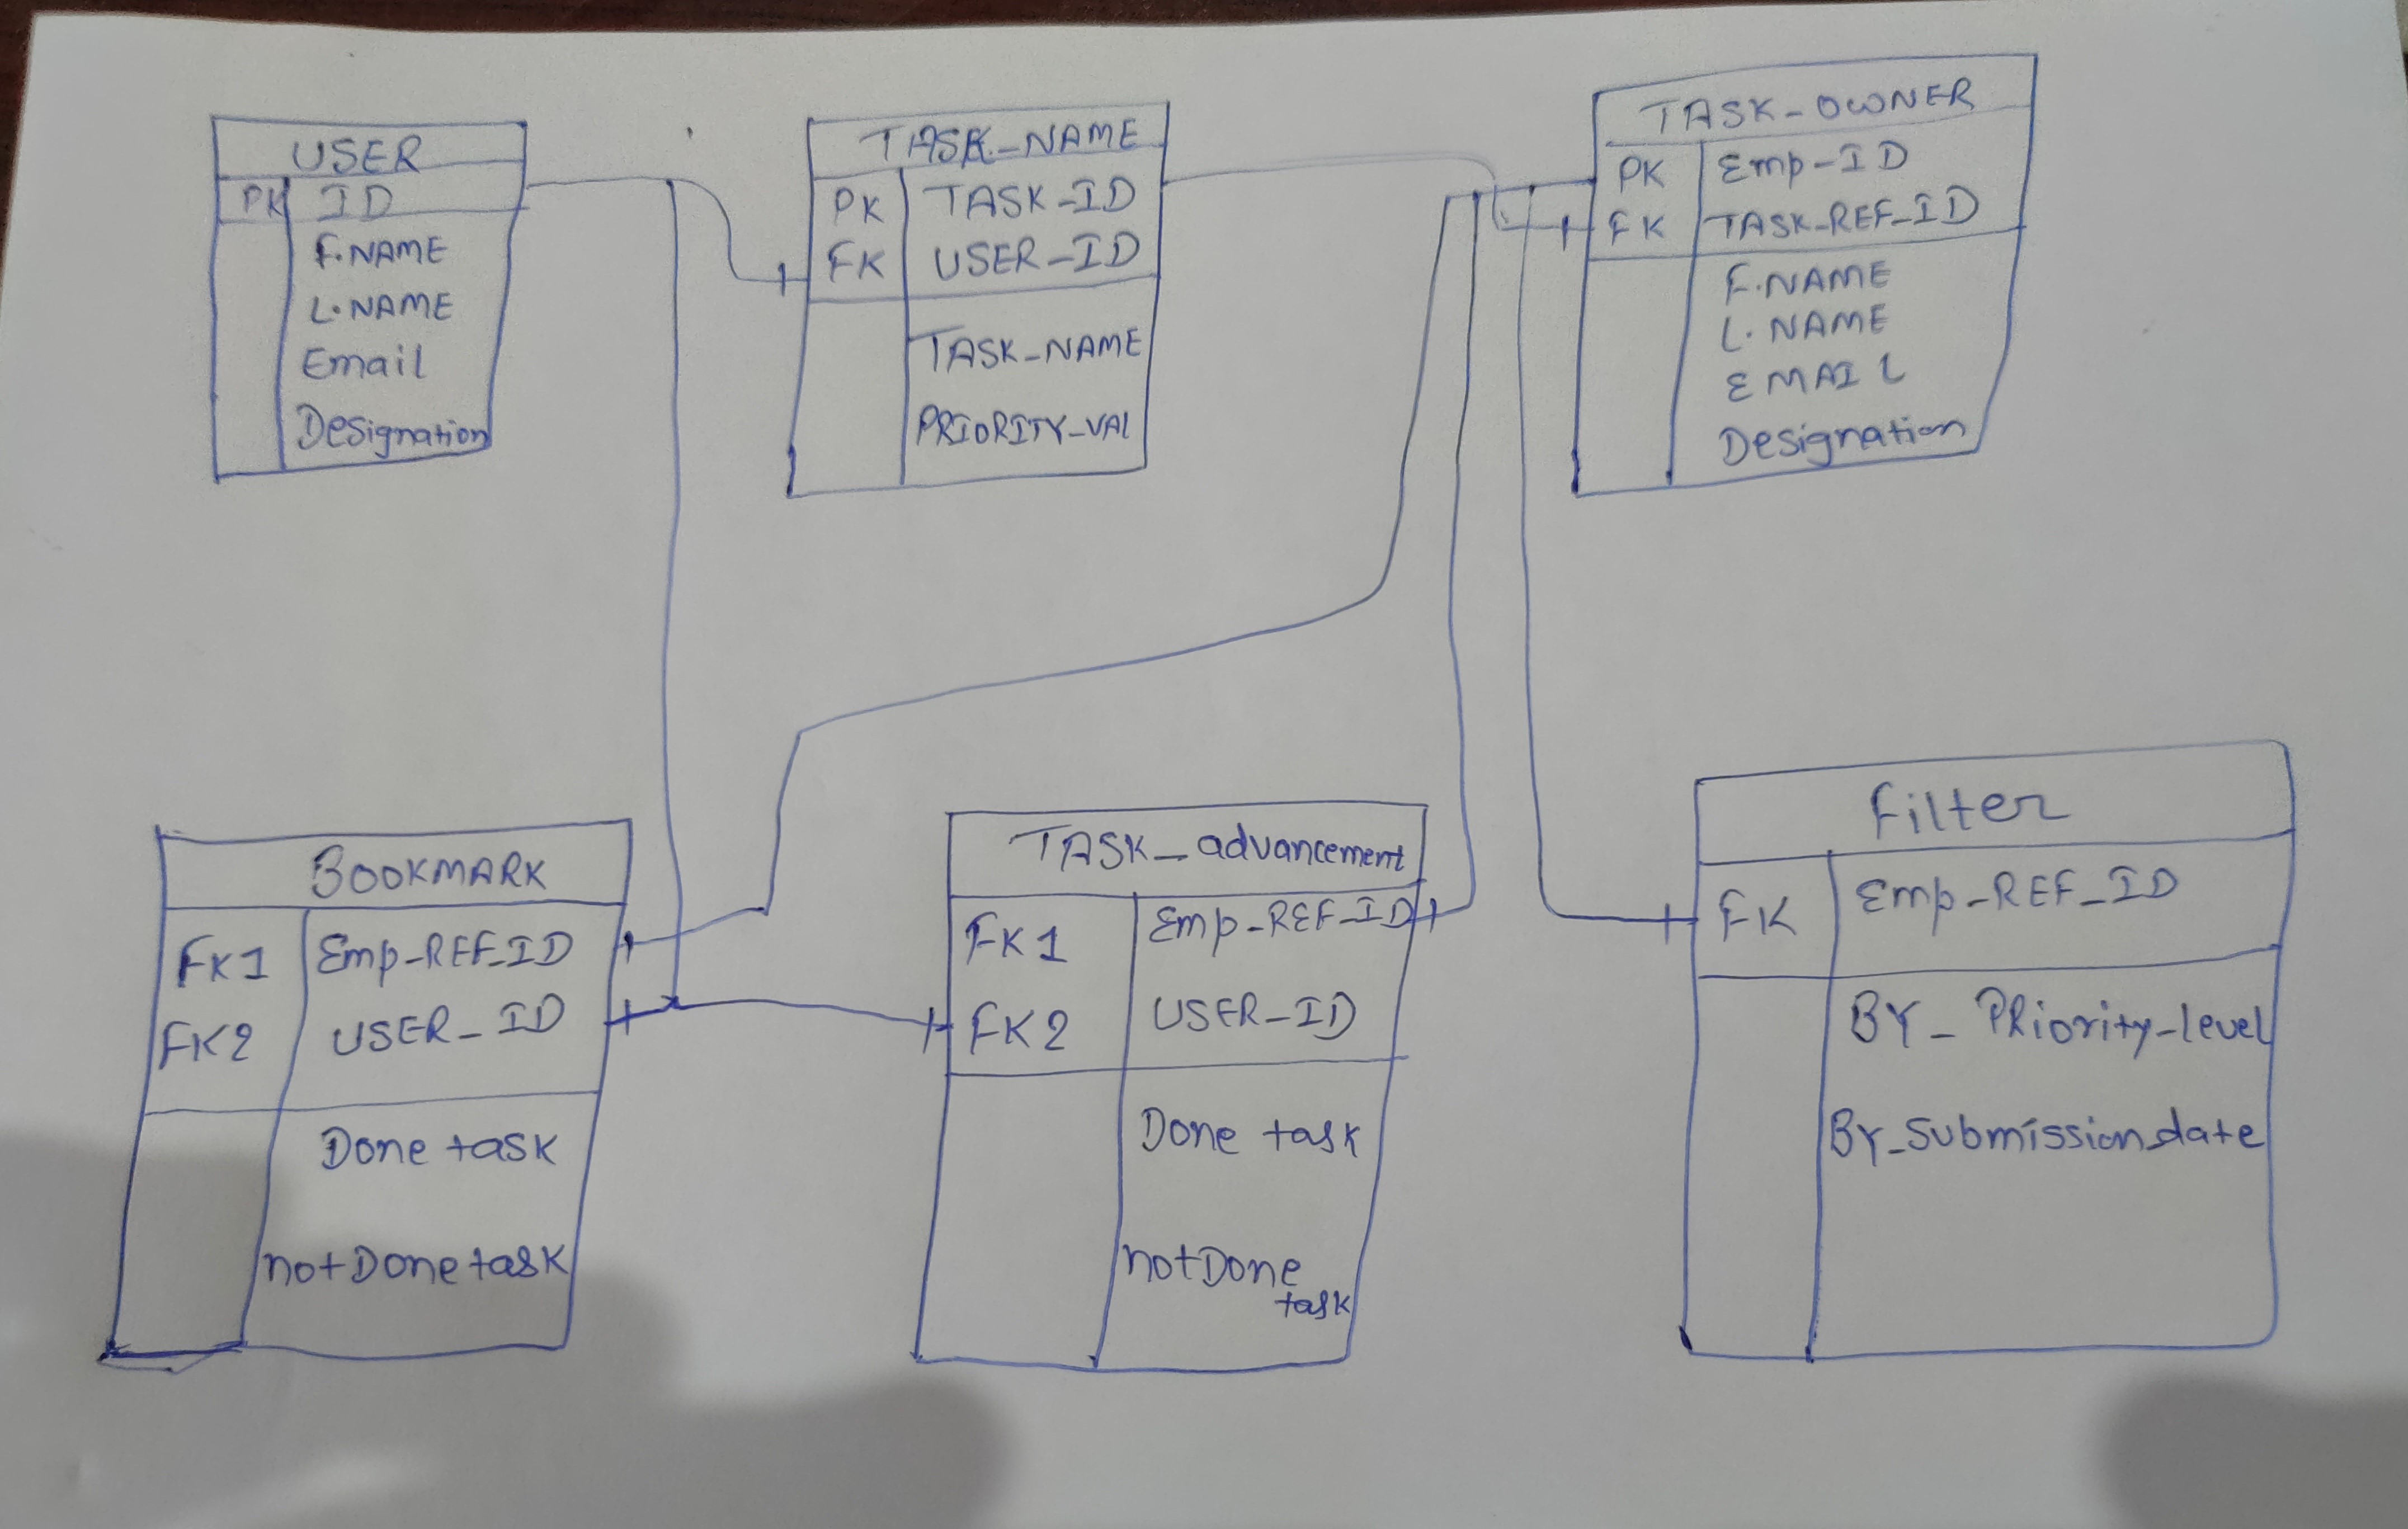 USER
PK ID
F.NAME
L.NAME
Email
Designation
TASK_NAME
PK TASK_ID
FK USER_ID
TASK_NAME
PRIORITY_VAL
TASK_OWNER
PK Emp-ID
FK TASK_REF_ID
F.NAME
L.NAME
EMAIL
Designation
BOOKMARK
FK1 Emp-REF_ID
FK2 USER_ID
Done task
not Done task
TASK_advancement
FK1 Emp-REF_ID
FK2 USER_ID
Done task
not Done
task
Filter
FK Emp-REF_ID
BY_PRiority_level
BY_Submission_date